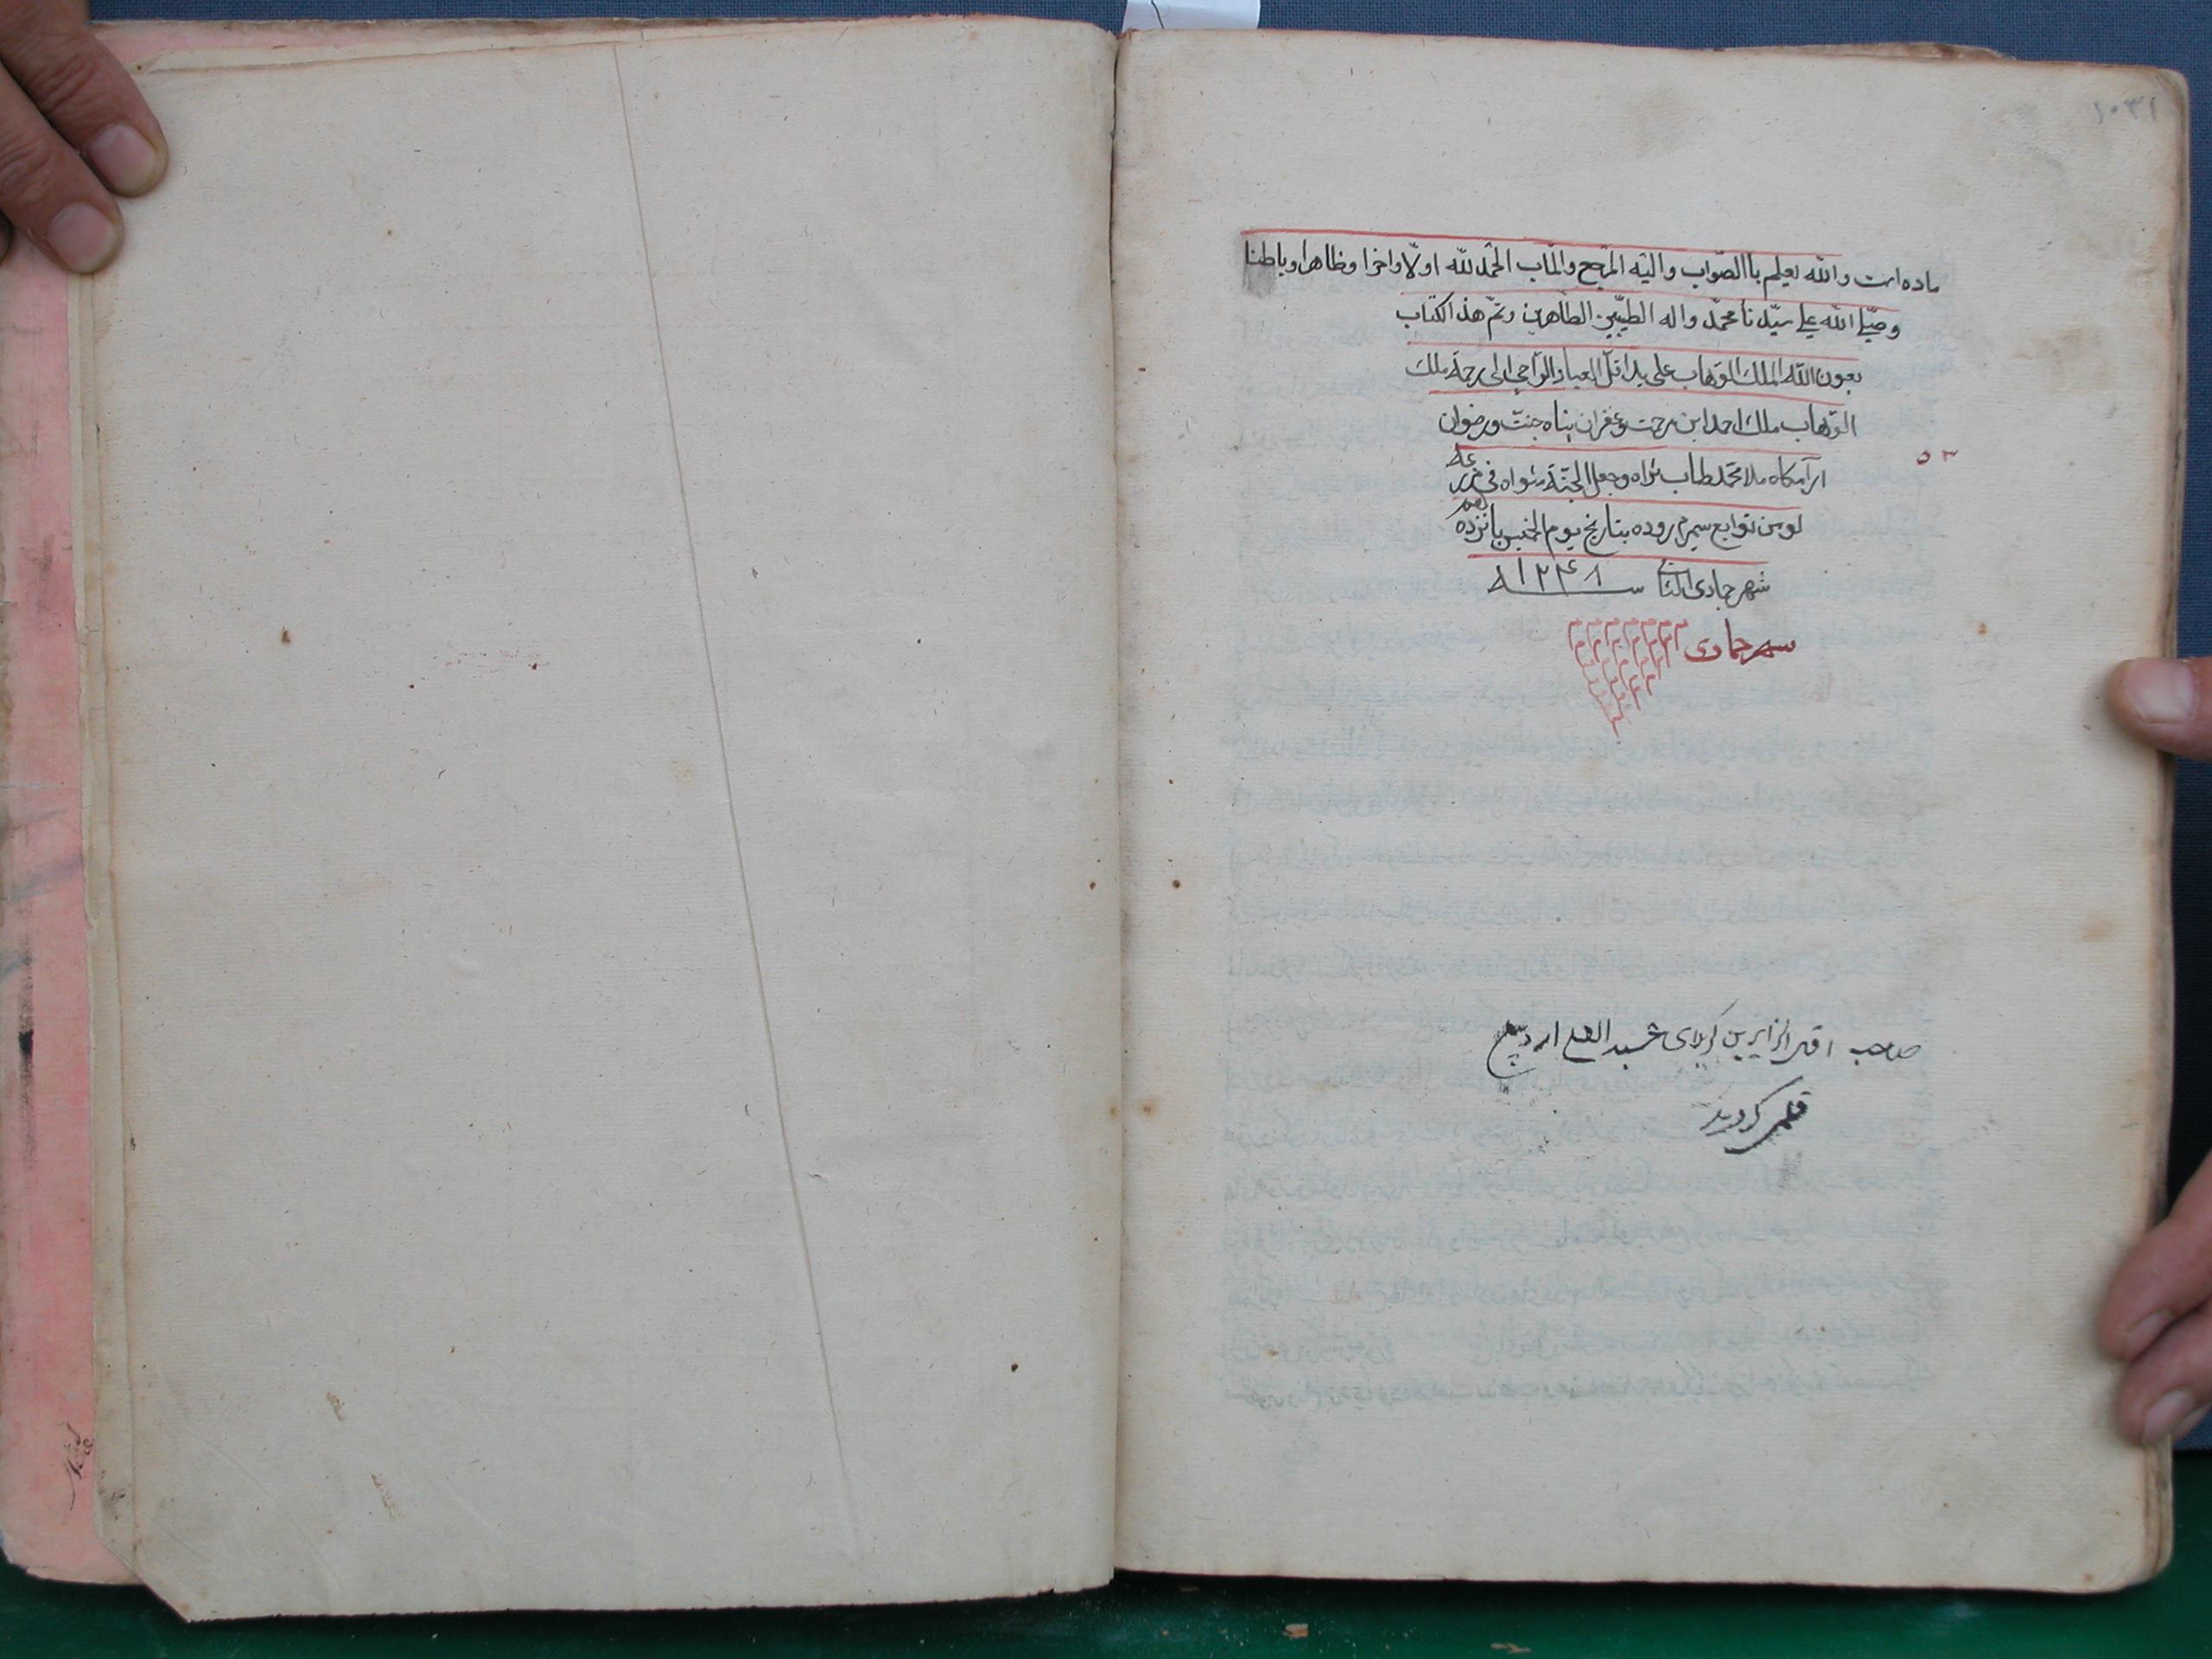 ماده است والله يعلم باالصّواب واليه المرجع والماب الحمد لله اولّا واخرا وظاهرا وباطنا
وصلّي الله علي سيّدنا محمّد واله الطيّبين الطاهرين وتمّ هذ الكتاب
بعون الله الملك الوهاب على يد اقلّ العباد الرّاجي الى رحمة ملك
الوّهاب ملك احمد ابن مرحمت وغفران پناه جنتّ ورضوان
ارآمكاه ملا محمد طاب ثراه وجعل الجنّة مثواه في
توابع سيرم روده بتاريخ يوم الخميس پانزدهم
شهر جمادى الثاني سنه ١٢٤٨
٥٣
شهر جمادى
صاحب اقل الزايرين كربلاى
قلمى كرديد
١٠٣١